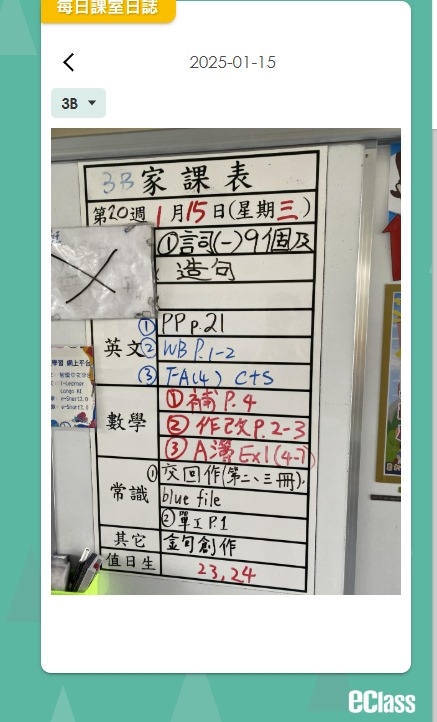 每日課室日誌
2025-01-15
3B
3B家課表
第20週1月15日(星期三)
①詞(一)9個及
造句
英文
① PP p.21
② WB P.1-2
③ FA(4) C+S
數學
① 補 P.4
② 作改 P.2-3
③ A簿 Ex1(4-7)
常識
① 交回作(第二、三冊),
blue file
② 單工 P.1
其它 金句創作
值日生 23, 24
學習 網上平台
eClass